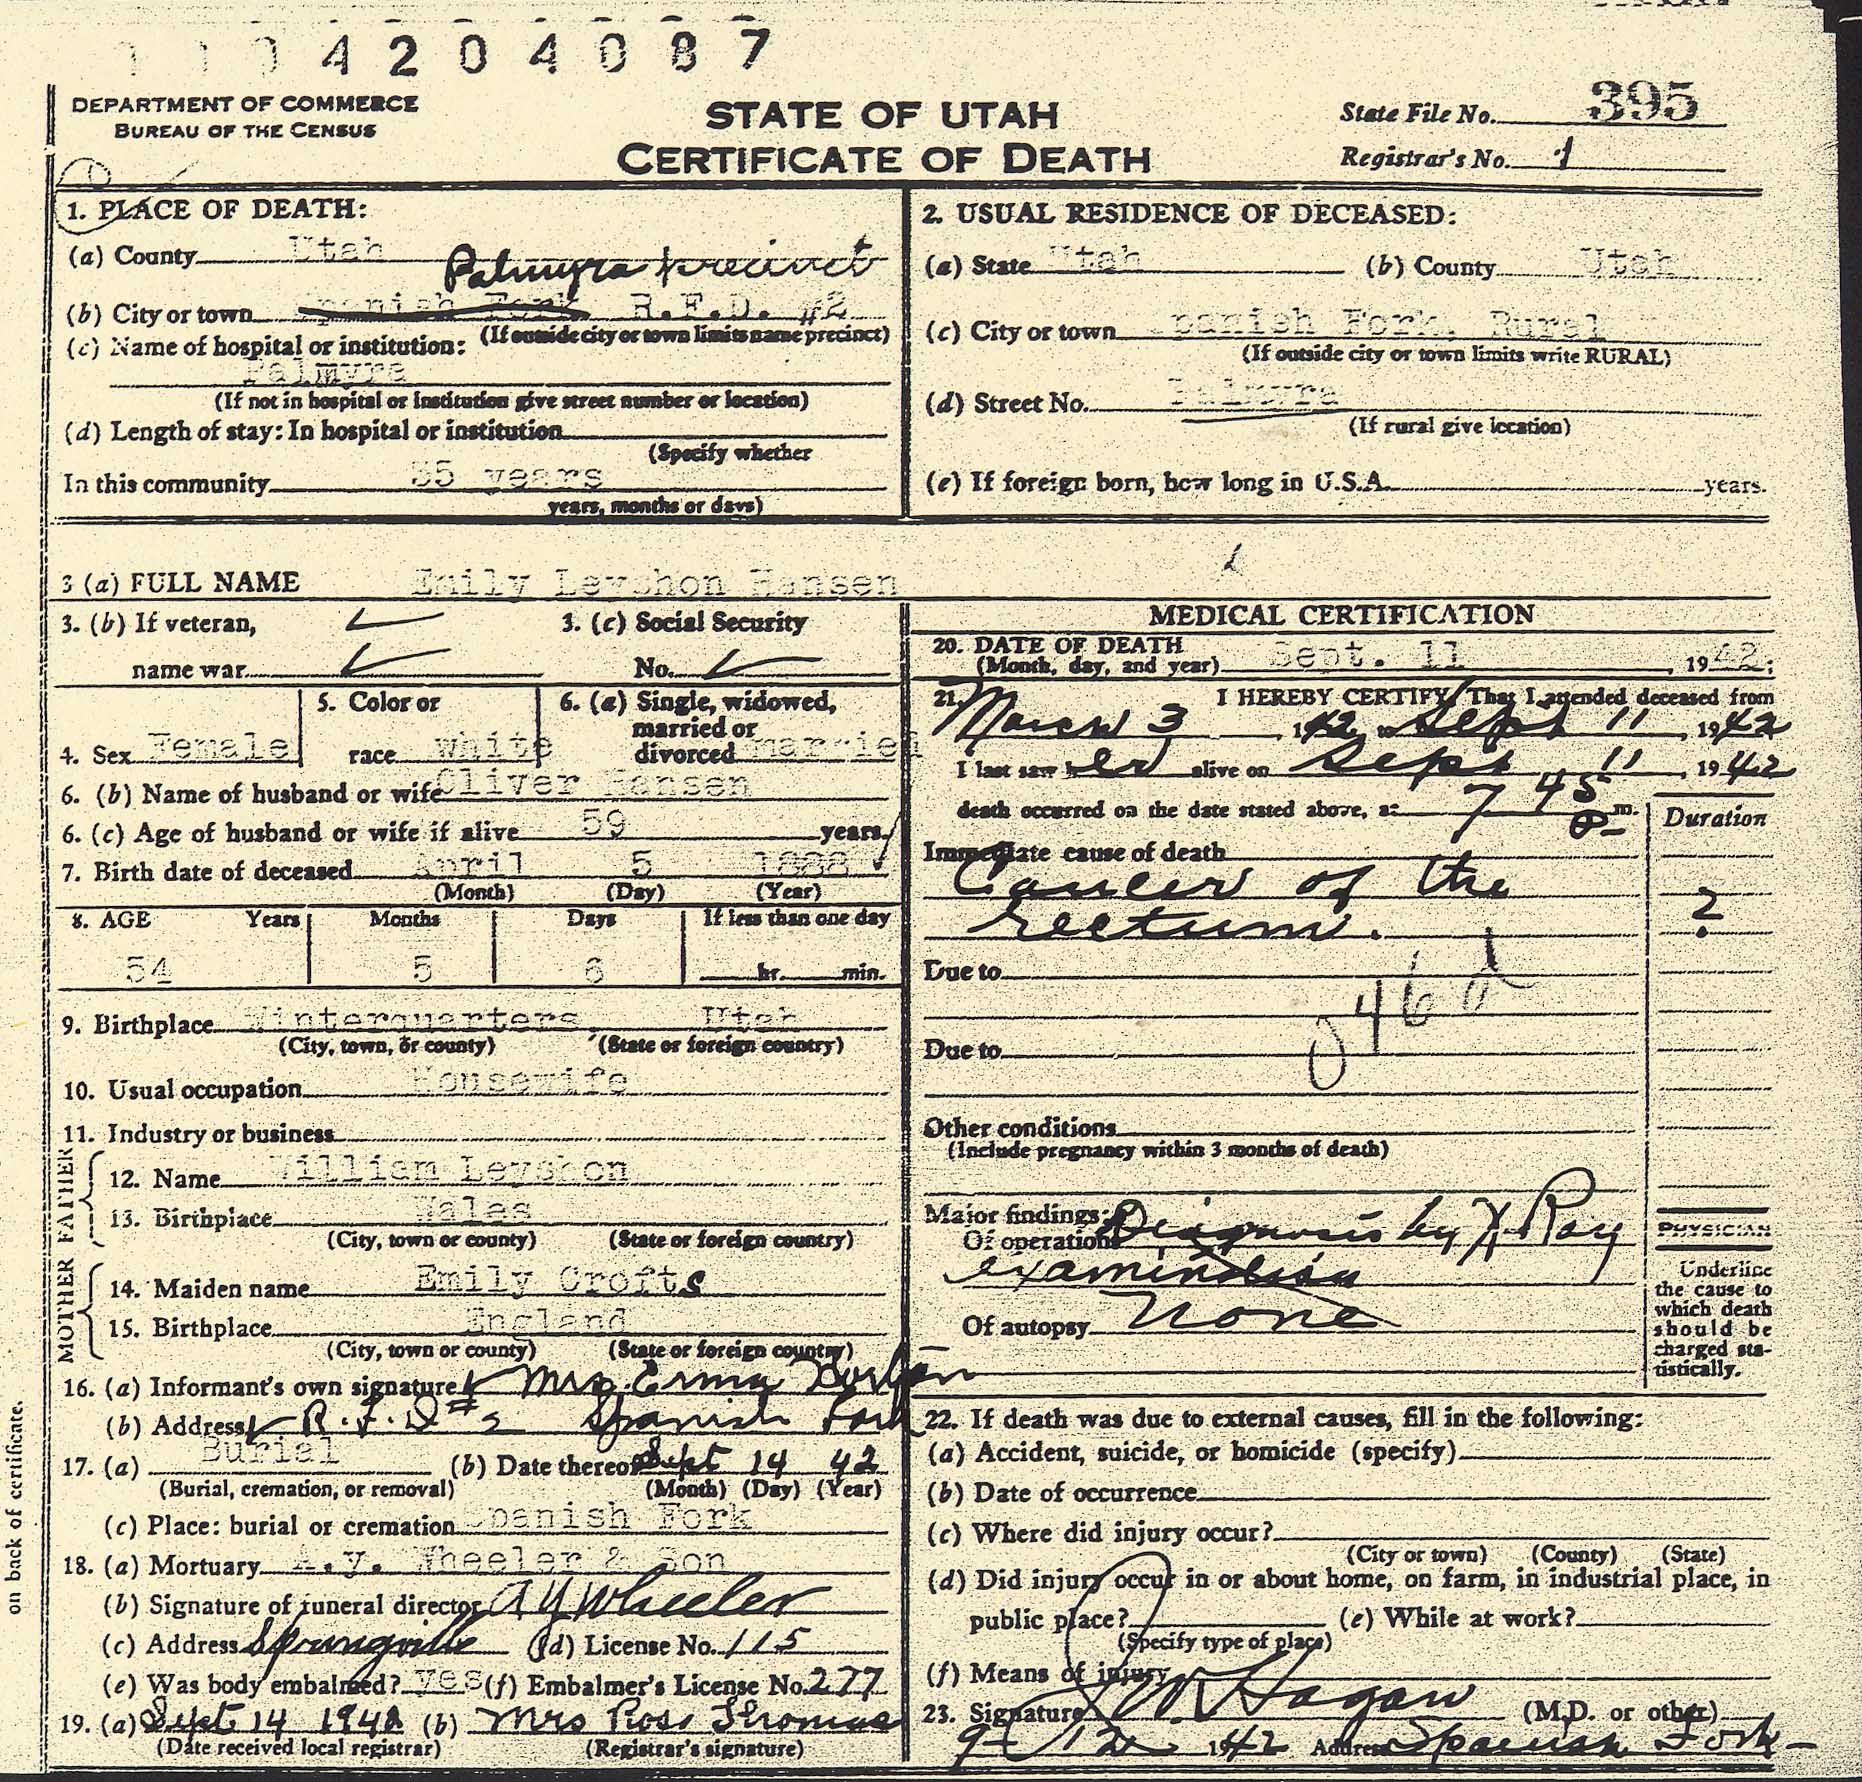 4204087
DEPARTMENT OF COMMERCE
BUREAU OF THE CENSUS
STATE OF UTAH
CERTIFICATE OF DEATH
State File No. 395
Registrar's No. 1
1. PLACE OF DEATH:
(a) County Utah
Palmyra precinct
(b) City or town Spanish Fork R.F.D. #2
(If outside city or town limits name precinct)
(c) Name of hospital or institution:
Palmyra
(If not in hospital or institution give street number or location)
(d) Length of stay: In hospital or institution
(Specify whether
In this community 35 years
years, months or days)
2. USUAL RESIDENCE OF DECEASED:
(a) State Utah (b) County Utah
(c) City or town Spanish Fork, Rural
(If outside city or town limits write RURAL)
(d) Street No. Palmyra
(If rural give location)
(e) If foreign born, how long in U.S.A. years.
3 (a) FULL NAME Emily Leyshon Hansen
3. (b) If veteran,
name war
3. (c) Social Security
No.
4. Sex Female
5. Color or
race white
6. (a) Single, widowed,
married or
divorced married
6. (b) Name of husband or wife Oliver Hansen
6. (c) Age of husband or wife if alive 59 years.
7. Birth date of deceased April 5 1888
(Month) (Day) (Year)
8. AGE Years Months Days If less than one day
54 5 6 hr. min.
9. Birthplace Winterquarters, Utah
(City, town, or county) (State or foreign country)
10. Usual occupation Housewife
11. Industry or business
FATHER
12. Name William Leyshon
13. Birthplace Wales
(City, town or county) (State or foreign country)
MOTHER
14. Maiden name Emily Crofts
15. Birthplace England
(City, town or county) (State or foreign country)
16. (a) Informant's own signature Mrs. Erma
(b) Address R.F.D #2 Spanish Fork
17. (a) Burial (b) Date thereof Sept 14 42
(Burial, cremation, or removal) (Month) (Day) (Year)
(c) Place: burial or cremation Spanish Fork
18. (a) Mortuary A.Y. Wheeler & Son
(b) Signature of funeral director A Y Wheeler
(c) Address Springville (d) License No. 115
(e) Was body embalmed? yes (f) Embalmer's License No. 277
19. (a) Sept 14 1942 (b) Mrs Ross Thomas
(Date received local registrar) (Registrar's signature)
MEDICAL CERTIFICATION
20. DATE OF DEATH
(Month, day, and year) Sept. 11, 1942;
21. I HEREBY CERTIFY, That I attended deceased from
March 3, 1942, to Sept 11, 1942
I last saw her alive on Sept 11, 1942
death occurred on the date stated above, at 7 45 P m.
Duration
Immediate cause of death
Cancer of the
rectum. ?
Due to
46d
Due to
Other conditions
(Include pregnancy within 3 months of death)
Major findings:
Of operations Diagnosis by X-Ray
examination
Of autopsy None
PHYSICIAN
Underline
the cause to
which death
should be
charged sta-
tistically.
22. If death was due to external causes, fill in the following:
(a) Accident, suicide, or homicide (specify)
(b) Date of occurrence
(c) Where did injury occur?
(City or town) (County) (State)
(d) Did injury occur in or about home, on farm, in industrial place, in
public place? (e) While at work?
(Specify type of place)
(f) Means of injury
23. Signature Hagan (M.D. or other)
9-12 1942 Address Spanish Fork
on back of certificate.